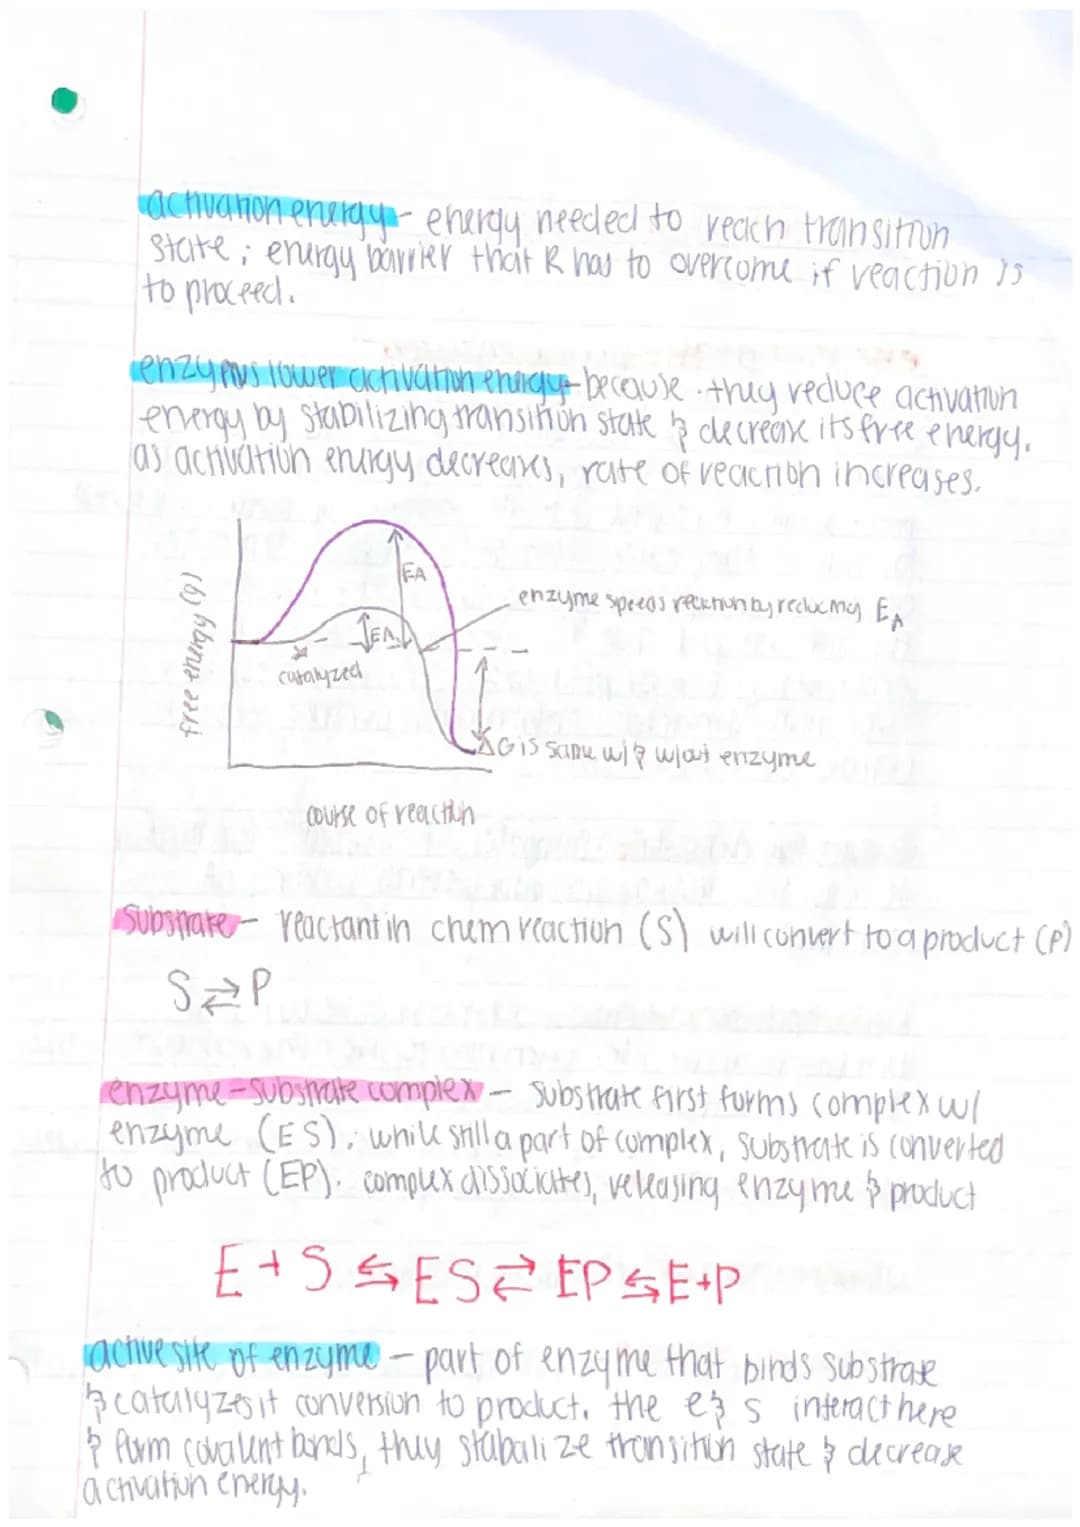 activation energy - energy needed to reach transition
state ; energy barrier that R has to overcome if reaction is
to proceed.
enzymes lower activation energy - because they reduce activation
energy by stabilizing transition state & decrease its free energy.
as activation energy decreases, rate of reaction increases.
free energy (g)
EA
enzyme speeds reaction by reducing EA
EA
catalyzed
ΔG is same w/ & w/out enzyme
course of reaction
substrate - reactant in chem reaction (S) will convert to a product (P)
S ⇄ P
enzyme-substrate complex - substrate first forms complex w/
enzyme (ES). while still a part of complex, substrate is converted
to product (EP). complex dissociates, releasing enzyme & product
E + S ⇆ ES ⇄ EP ⇆ E+P
active site of enzyme - part of enzyme that binds substrate
& catalyzes it conversion to product. the e & s interact here
& form covalent bonds, they stabalize transition state & decrease
activation energy.